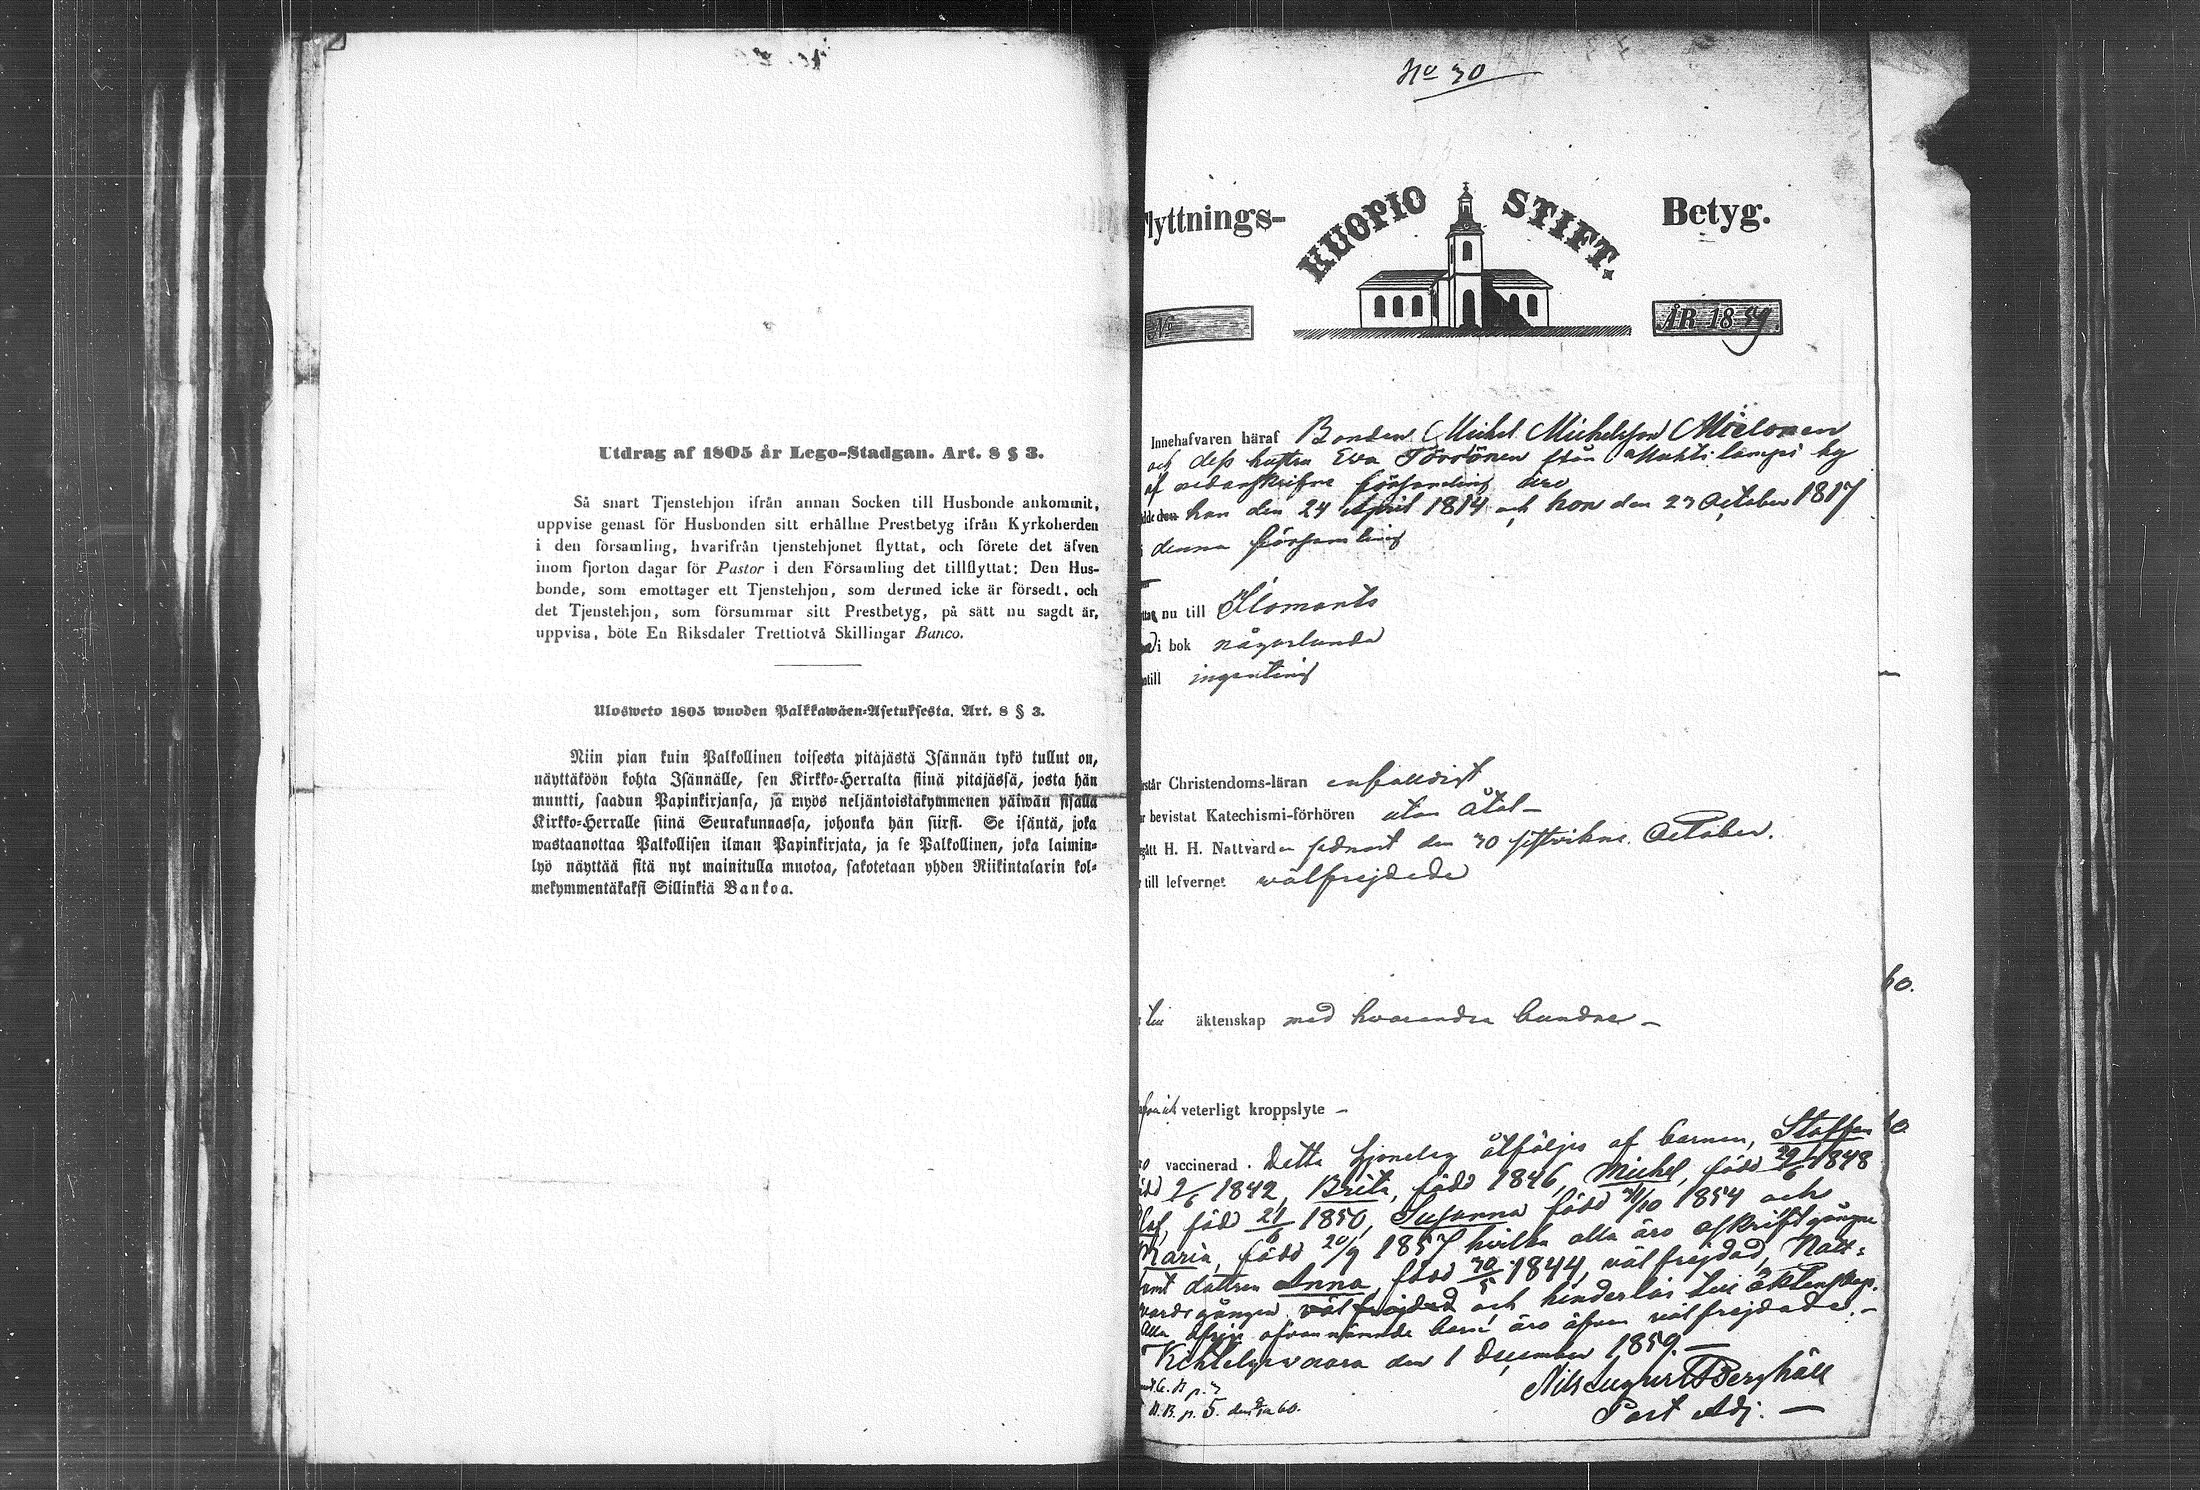 Utdrag af 1805 år Lego-Stadgan. Art. 8 § 3.
Så snart Tjenstehjon ifrån annan Socken till Husbonde ankommit,
uppvise genast för Husbonden sitt erhållne Prestbetyg ifrån Kyrkoherden
i den församling, hvarifrån tjenstehjonet flyttat, och förete det äfven
inom fjorton dagar för Pastor i den Församling det tillflyttat: Den Hus-
bonde, som emottager ett Tjenstehjon, som dermed icke är försedt, och
det Tjenstehjon, som försummar sitt Prestbetyg, på sätt nu sagdt är,
uppvisa, böte En Riksdaler Trettiotvå Skillingar Banco.
Ulosweto 1805 wuoden Palkkawäen-Asetuksesta. Art. 8 § 3.
Niin pian kuin Palkollinen toisesta pitäjästä Isännän tykö tullut on,
näyttäköön kohta Isännälle, sen Kirkko-Herralta siinä pitäjässä, josta hän
muutti, saadun Papinkirjansa, ja myös neljäntoistakymmenen päiwän sisällä
Kirkko-Herralle siinä Seurakunnassa, johonka hän siirsi. Se isäntä, joka
wastaanottaa Palkollisen ilman Papinkirjata, ja se Palkollinen, joka laimin-
lyö näyttää sitä nyt mainitulla muotoa, sakotetaan yhden Riikintalarin kol-
mekymmentäkaksi Sillinkiä Bankoa.
No 30
flyttnings- KUOPIO STIFT. Betyg.
No ÅR 1859
Innehafvaren häraf Bonden Michel Michelsson
och dess hustru Eva från Muktilampi by
af nedanskrifne församling äro
han den 24 April 1814 och hon den 23 October 1817
denna församling
nu till Ilomants
i bok någorlunda
till ingenting
står Christendoms-läran enfalldigt
bevistat Katechismi-förhören utan åtal –
gått H. H. Nattvarden sednast den 30 sistvikne October.
till lefvernet välfrejdade
till äktenskap med hvarandra bundne –
veterligt kroppslyte –
vaccinerad. Detta åtföljes af barnen, Staffan
född 2/6 1842, Brita, född 1846, Michel, född 29/6 1848
Olof, född 21/6 1850, Susanna född /10 1854 och
Maria, född 20/9 1857 hvilka alla äro afskriftgångne
samt dottren Anna, född 30/5 1844, väl frejdad, Natt-
vardsgången och hinderlös till äktenskap.
Alla ofvannämnde barn äro äfven välfrejdade. –
Kihtelyswaara den 1 December 1859. –
Nils August Berghäll
Past Adj. –
p. 3
N.B. p. 5. den 60.
60.